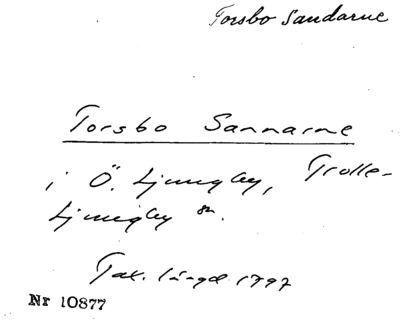 Torsbo Sandarne
Torsbo Sannarne
i Ö. Ljungby, Trolle-
Ljungby sn.
Tax. längd 1797
Nr 10877